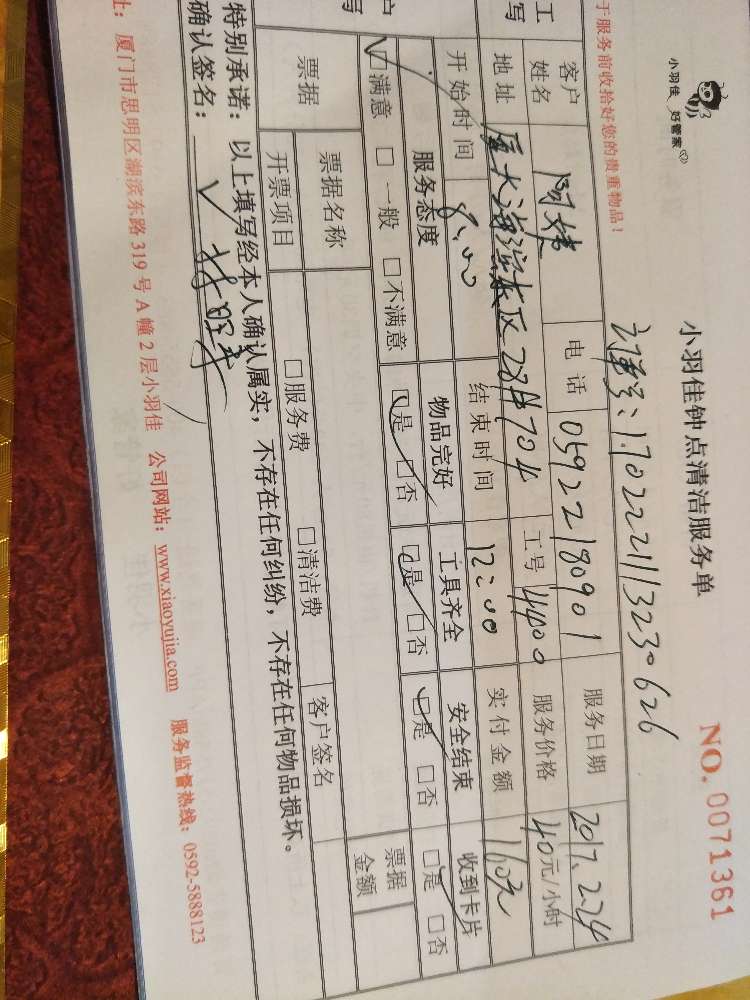 小羽佳 好管家
小羽佳钟点清洁服务单
NO. 0071361
于服务前收拾好您的贵重物品！
1702221113230626
客户姓名 阿姨 电话 05922180901 服务日期 2017.2.24
地址 厦大海滨东区28#704 工号 4400 服务价格 40元/小时
开始时间 8:00 结束时间 12:00 实付金额 160元
服务态度 物品完好 工具齐全 安全结束 收到卡片
☑满意 □一般 □不满意 ☑是 □否 ☑是 □否 ☑是 □否 ☑是 □否
票据 票据名称 客户签名 票据金额
开票项目 □服务费 □清洁费
特别承诺：以上填写经本人确认属实，不存在任何纠纷，不存在任何物品损坏。
确认签名：
址：厦门市思明区湖滨东路319号A幢2层小羽佳 公司网站：www.xiaoyujia.com 服务监督热线：0592-5888123